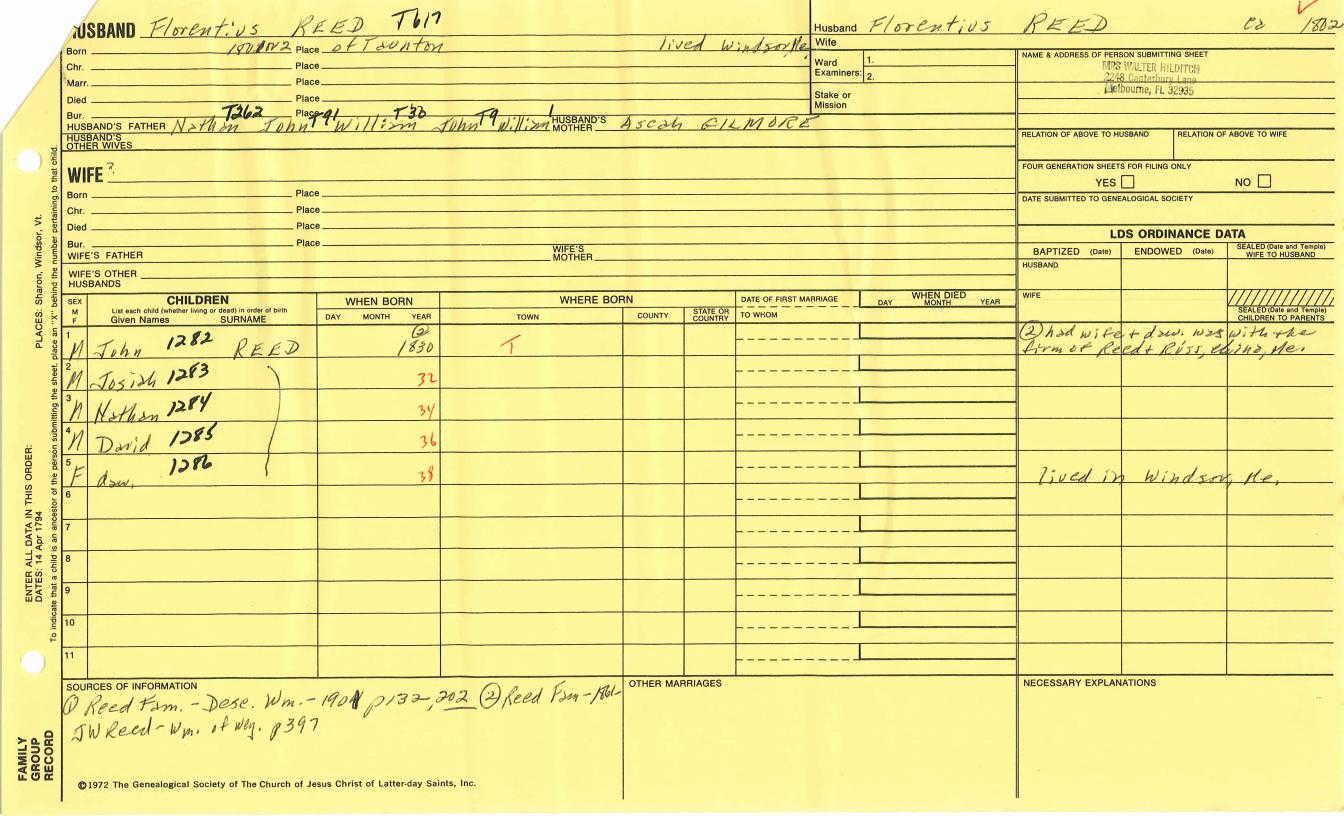 HUSBAND Florentius REED T617
Born Place of Taunton lived Windsor, Me.
Chr. Place
Marr. Place
Died Place
Bur. Place
T262 T91 T33 T9 1
HUSBAND'S FATHER Nathan John William John William HUSBAND'S MOTHER Ascah GILMORE
HUSBAND'S OTHER WIVES
Husband Florentius REED ca 1802
Wife
Ward Examiners: 1.
2.
Stake or Mission
NAME & ADDRESS OF PERSON SUBMITTING SHEET
MRS WALTER HILDITCH
2248 Canterbury Lane
Melbourne, FL 32935
RELATION OF ABOVE TO HUSBAND RELATION OF ABOVE TO WIFE
FOUR GENERATION SHEETS FOR FILING ONLY
YES NO
DATE SUBMITTED TO GENEALOGICAL SOCIETY
WIFE ?
Born Place
Chr. Place
Died Place
Bur. Place
WIFE'S FATHER WIFE'S MOTHER
WIFE'S OTHER HUSBANDS
LDS ORDINANCE DATA
BAPTIZED (Date) ENDOWED (Date) SEALED (Date and Temple) WIFE TO HUSBAND
HUSBAND
WIFE
SEALED (Date and Temple) CHILDREN TO PARENTS
SEX M F
CHILDREN
List each child (whether living or dead) in order of birth
Given Names SURNAME
WHEN BORN
DAY MONTH YEAR
WHERE BORN
TOWN COUNTY STATE OR COUNTRY
DATE OF FIRST MARRIAGE
TO WHOM
WHEN DIED
DAY MONTH YEAR
1 M John 1282 REED (2) 1830 T
(2) had wife + dau. was with the
firm of Reed + Russ, China, Me.
2 M Josiah 1283 32
3 M Nathan 1284 34
4 M David 1285 36
5 F dau. 1286 38 lived in Windsor, Me.
6
7
8
9
10
11
SOURCES OF INFORMATION
(1) Reed Fam. - Desc. Wm. - 1901 p132, 202 (2) Reed Fam - 1861
JW Reed - Wm. of Wey. p397
OTHER MARRIAGES
NECESSARY EXPLANATIONS
©1972 The Genealogical Society of The Church of Jesus Christ of Latter-day Saints, Inc.
FAMILY GROUP RECORD
ENTER ALL DATA IN THIS ORDER:
DATES: 14 Apr 1794 PLACES: Sharon, Windsor, Vt.
To indicate that a child is an ancestor of the person submitting the sheet, place an "X" behind the number pertaining to that child.